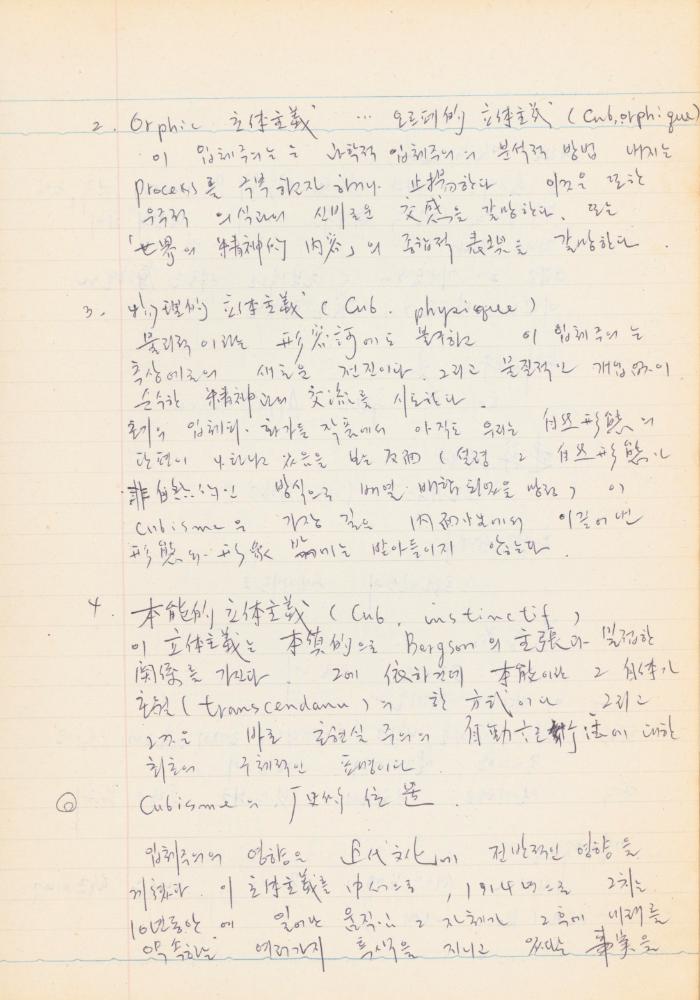 2. Orphic 立体主義 … 오르페的 立体主義 (Cub. orphique)
이 입체주의는 는 과학적 입체주의의 분석적 방법 내지는
process를 극복하고자 하거나 止揚한다 이것은 또한
우주적 의식과의 신비로운 交感을 갈망한다. 또는
「世界의 精神的 内容」의 종합적 表現을 갈망한다.
3. 物理的 立体主義 (Cub. physique)
물리적이라는 形容詞에도 불구하고 이 입체주의는
추상에로의 새로운 전진이다. 그리고 물질적인 개입없이
순수한 精神과의 交流를 시도한다.
초기의 입체파 화가들 작품에서 아직도 우리는 自然形態의
단편이 나타나고 있음을 보는 反面 (설령 그 自然形態가
非自然的인 방식으로 배열 되었을 망정) 이
cubisme은 가장 깊은 内面으로에서 이끌어낸
形態와 形象 밖에는 받아들이지 않는다.
4. 本能的 立体主義 (Cub. instinctif)
이 立体主義는 本質的으로 Bergson의 主張과 밀접한
関係를 가진다. 그에 依하건데 本能이란 그 自体가
초월(transcendanu)의 한 方式이다 그리고
그것은 바로 초현실주의의 自動記述法에 대한
최초의 구체적인 표명이다.
◎ Cubisme의 歴史的 位置.
입체주의의 영향은 近代文化에 전반적인 영향을
끼쳤다. 이 立体主義를 中心으로, 1914년으로 그치는
10년동안에 일어난 움직임 그 자체가 그후에 미래를
약속하는 여러가지 특색을 지니고 있다는 事実을